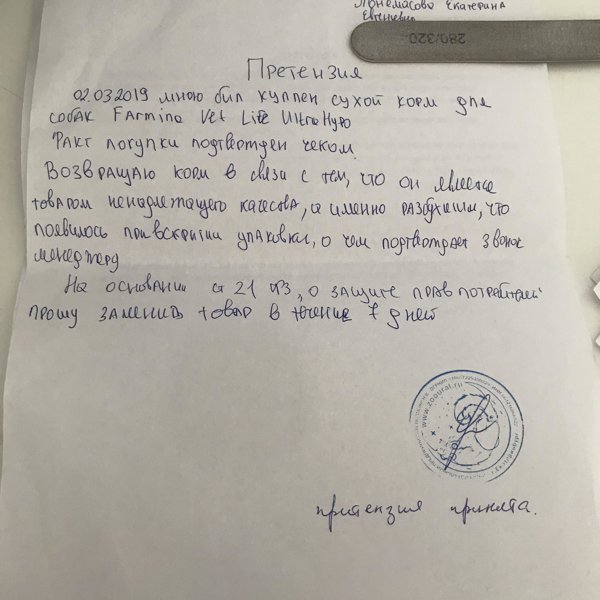 Екатерина
280/320
Претензия
02.03.2019 мною был куплен сухой корм для
собак Farmina Vet Life UltraHypo
Факт покупки подтвержден чеком
Возвращаю корм в связи с тем, что он является
товаром ненадлежащего качества, а именно разбухшим, что
появилось при вскрытии упаковки, о чем подтверждает звонок
менеджеру
На основании ст 21 ФЗ "О защите прав потребителей"
прошу заменить товар в течение 7 дней
www.zooural.ru
притензия принята.